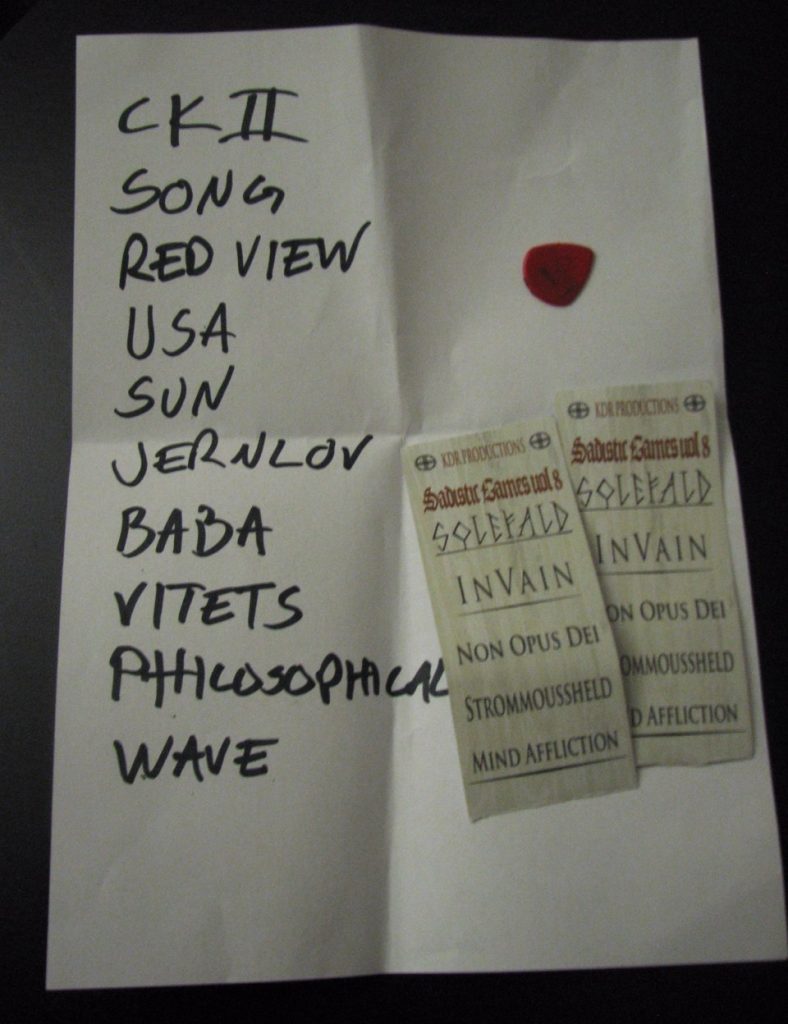 CK II
SONG
RED VIEW
USA
SUN
JERNLOV
BABA
VITETS
PHILOSOPHICAL
WAVE
KDR PRODUCTIONS
Sadistic Games vol 8
SOLEFALD
INVAIN
NON OPUS DEI
STROMMOUSSHELD
MIND AFFLICTION
KDR PRODUCTIONS
Sadistic Games vol 8
SOLEFALD
INVAIN
ON OPUS DEI
OMMOUSSHELD
D AFFLICTION